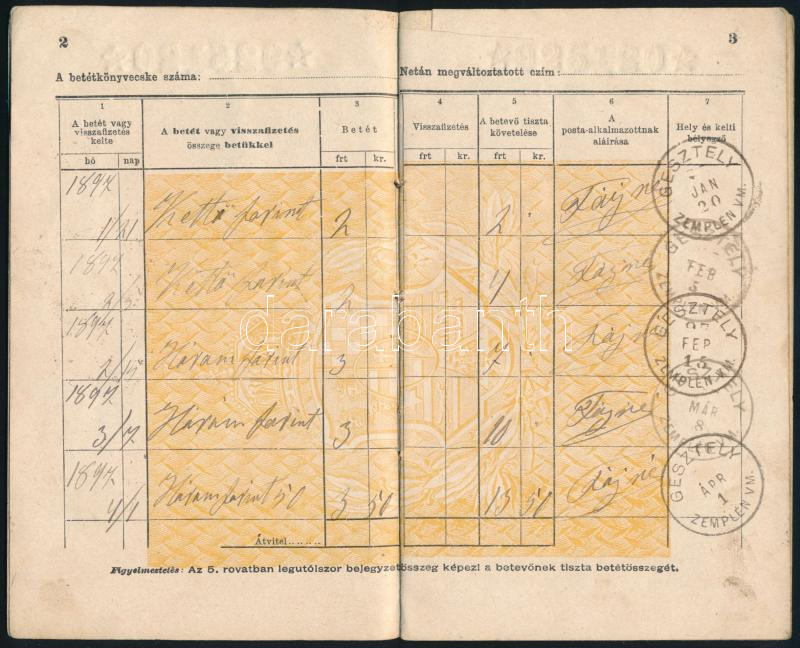 2
3
A betétkönyvecske száma:
Netán megváltoztatott czím:
1 2 3 4 5 6 7
A betét vagy visszafizetés kelte
A betét vagy visszafizetés összege betükkel
Betét
Visszafizetés
A betevő tiszta követelése
A posta-alkalmazottnak aláirása
Hely és kelti bélyegző
hó nap frt kr. frt kr. frt kr.
1897
Kettő forint 2 2
GESZTELY JAN 20 ZEMPLÉN VM.
1897
Kettő forint 2 4
GESZTELY FEB 5
1897
Három forint 3 7
GESZTELY 97 FEP 15 ZEMPLÉN VM.
1897
3/7 Három forint 3 10
MÁR 8
1897
4/1 Három forint 50 3 50 13 50
GESZTELY ÁPR 1 ZEMPLÉN VM.
Átvitel
Figyelmeztetés: Az 5. rovatban legutólszor bejegyzett összeg képezi a betevőnek tiszta betétösszegét.
darabanth